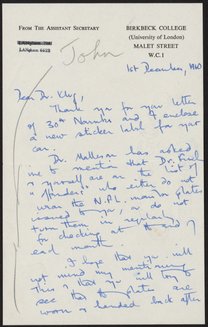 FROM THE ASSISTANT SECRETARY
BIRKBECK COLLEGE
(University of London)
MALET STREET
W.C.1
LANgham 6622
John
1st December, 1960
Dear Dr. Klug,
Thank you for your letter
of 30th November and I enclose
a new sticker label for your
car.
Dr. Mallerson has asked
me to mention that Dr. Finch
& yourself are on the list of
"offenders" who either do not
wear the N.P.L. main plates
issued to you, or do not
turn them in regularly
for checking at the end of
each month.
I hope that you will
not mind my mentioning
this & that you will try to
see that the plates are
worn & handed back after